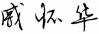 戚怀华